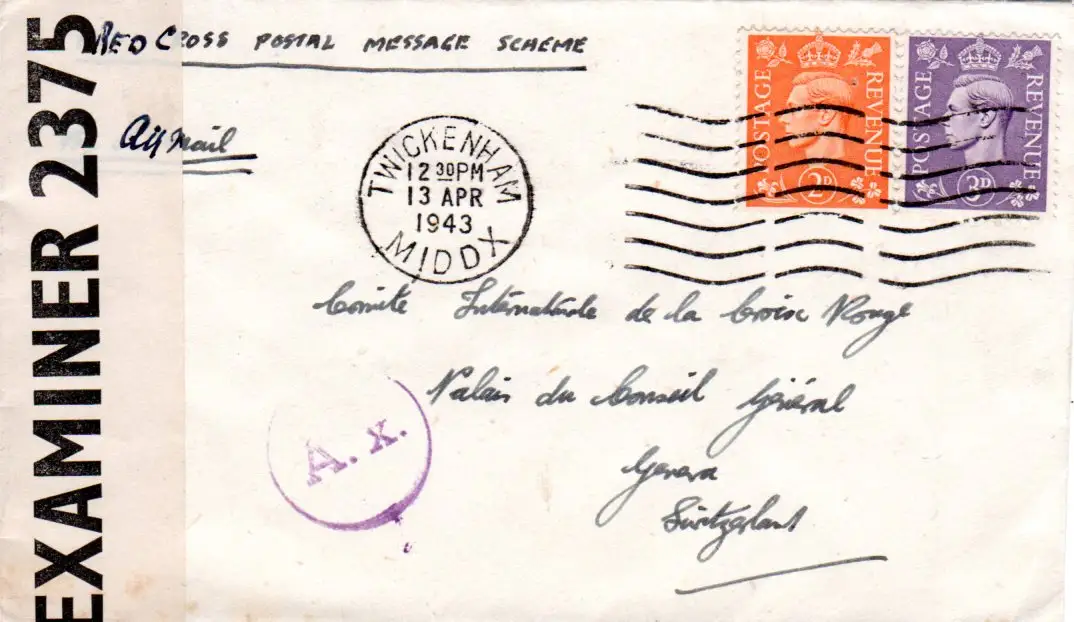 EXAMINER 2375
RED CROSS POSTAL MESSAGE SCHEME
Air Mail
TWICKENHAM
12 30PM
13 APR
1943
MIDDX
POSTAGE REVENUE
2D
POSTAGE REVENUE
3D
Comité Internationale de la Croix Rouge
Palais du Conseil Général
Geneva
Switzerland
A. x.